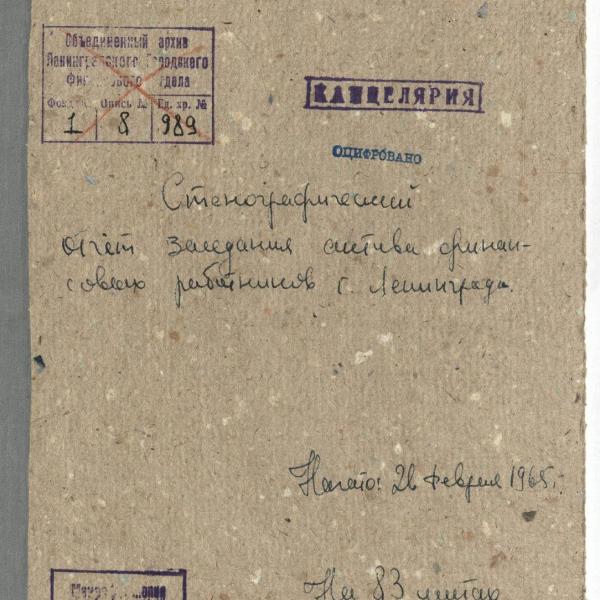 Объединенный архив
Ленинградского Городского
Финансового отдела
Фонд № Опись № Ед. хр. №
1 8 989
КАНЦЕЛЯРИЯ
ОЦИФРОВАНО
Стенографический
отчёт заседания актива финан-
совых работников г. Ленинграда.
Начато: 26 февраля 1965г.
На 83 листах